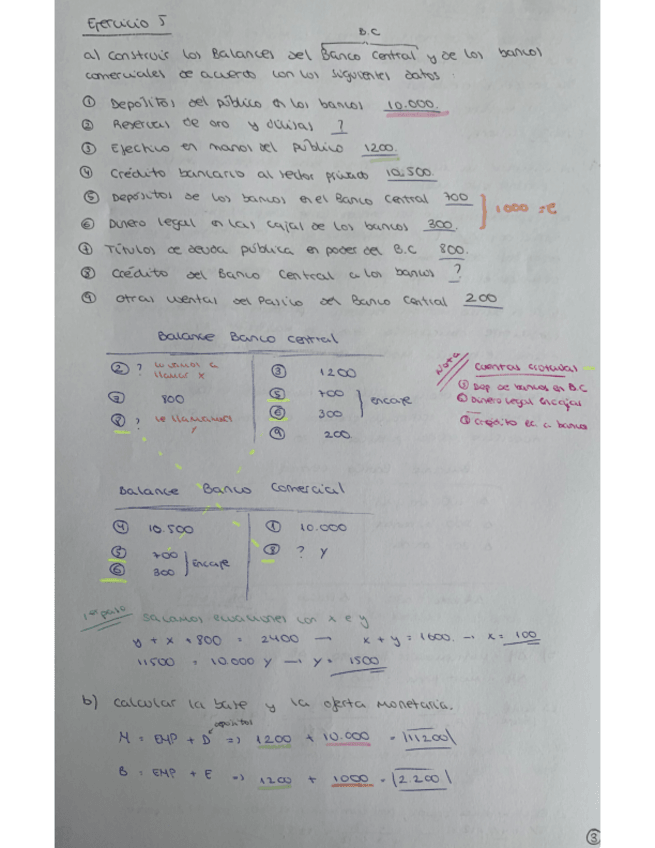 Ejercicio 5
B.C
a) Construir los Balances del Banco Central y de los bancos
comerciales de acuerdo con los siguientes datos
① Depósitos del público en los bancos 10.000.
② Reservas de oro y divisas ?
③ Efectivo en manos del público 1200.
④ Crédito bancario al sector privado 10.500.
⑤ Depósitos de los bancos en el Banco Central 700
⑥ Dinero legal en las cajas de los bancos 300.
1000 = E
⑦ Títulos de deuda pública en poder del B.C 800.
⑧ Crédito del Banco Central a los bancos ?
⑨ Otras cuentas del Pasivo del Banco Central 200
Balance Banco Central
② ? lo vamos a llamar x
③ 1200
⑦ 800
⑤ 700
⑥ 300
encaje
⑧ ? le llamamos y
⑨ 200
Nota
Cuentas cruzadas
⑤ Dep de bancos en B.C
⑥ Dinero legal en cajas
⑧ Crédito BC a bancos
Balance Banco Comercial
④ 10.500
① 10.000
⑤ 700
⑥ 300
encaje
⑧ ? y
1er paso
Sacamos ecuaciones con x e y
y + x + 800 = 2400 → x + y = 1600. → x = 100
11500 = 10.000 y → y = 1500
b) Calcular la base y la oferta monetaria.
depósitos
M = EMP + D => 1200 + 10.000 = 11.200
B = EMP + E => 1200 + 1000 = 2.200
3